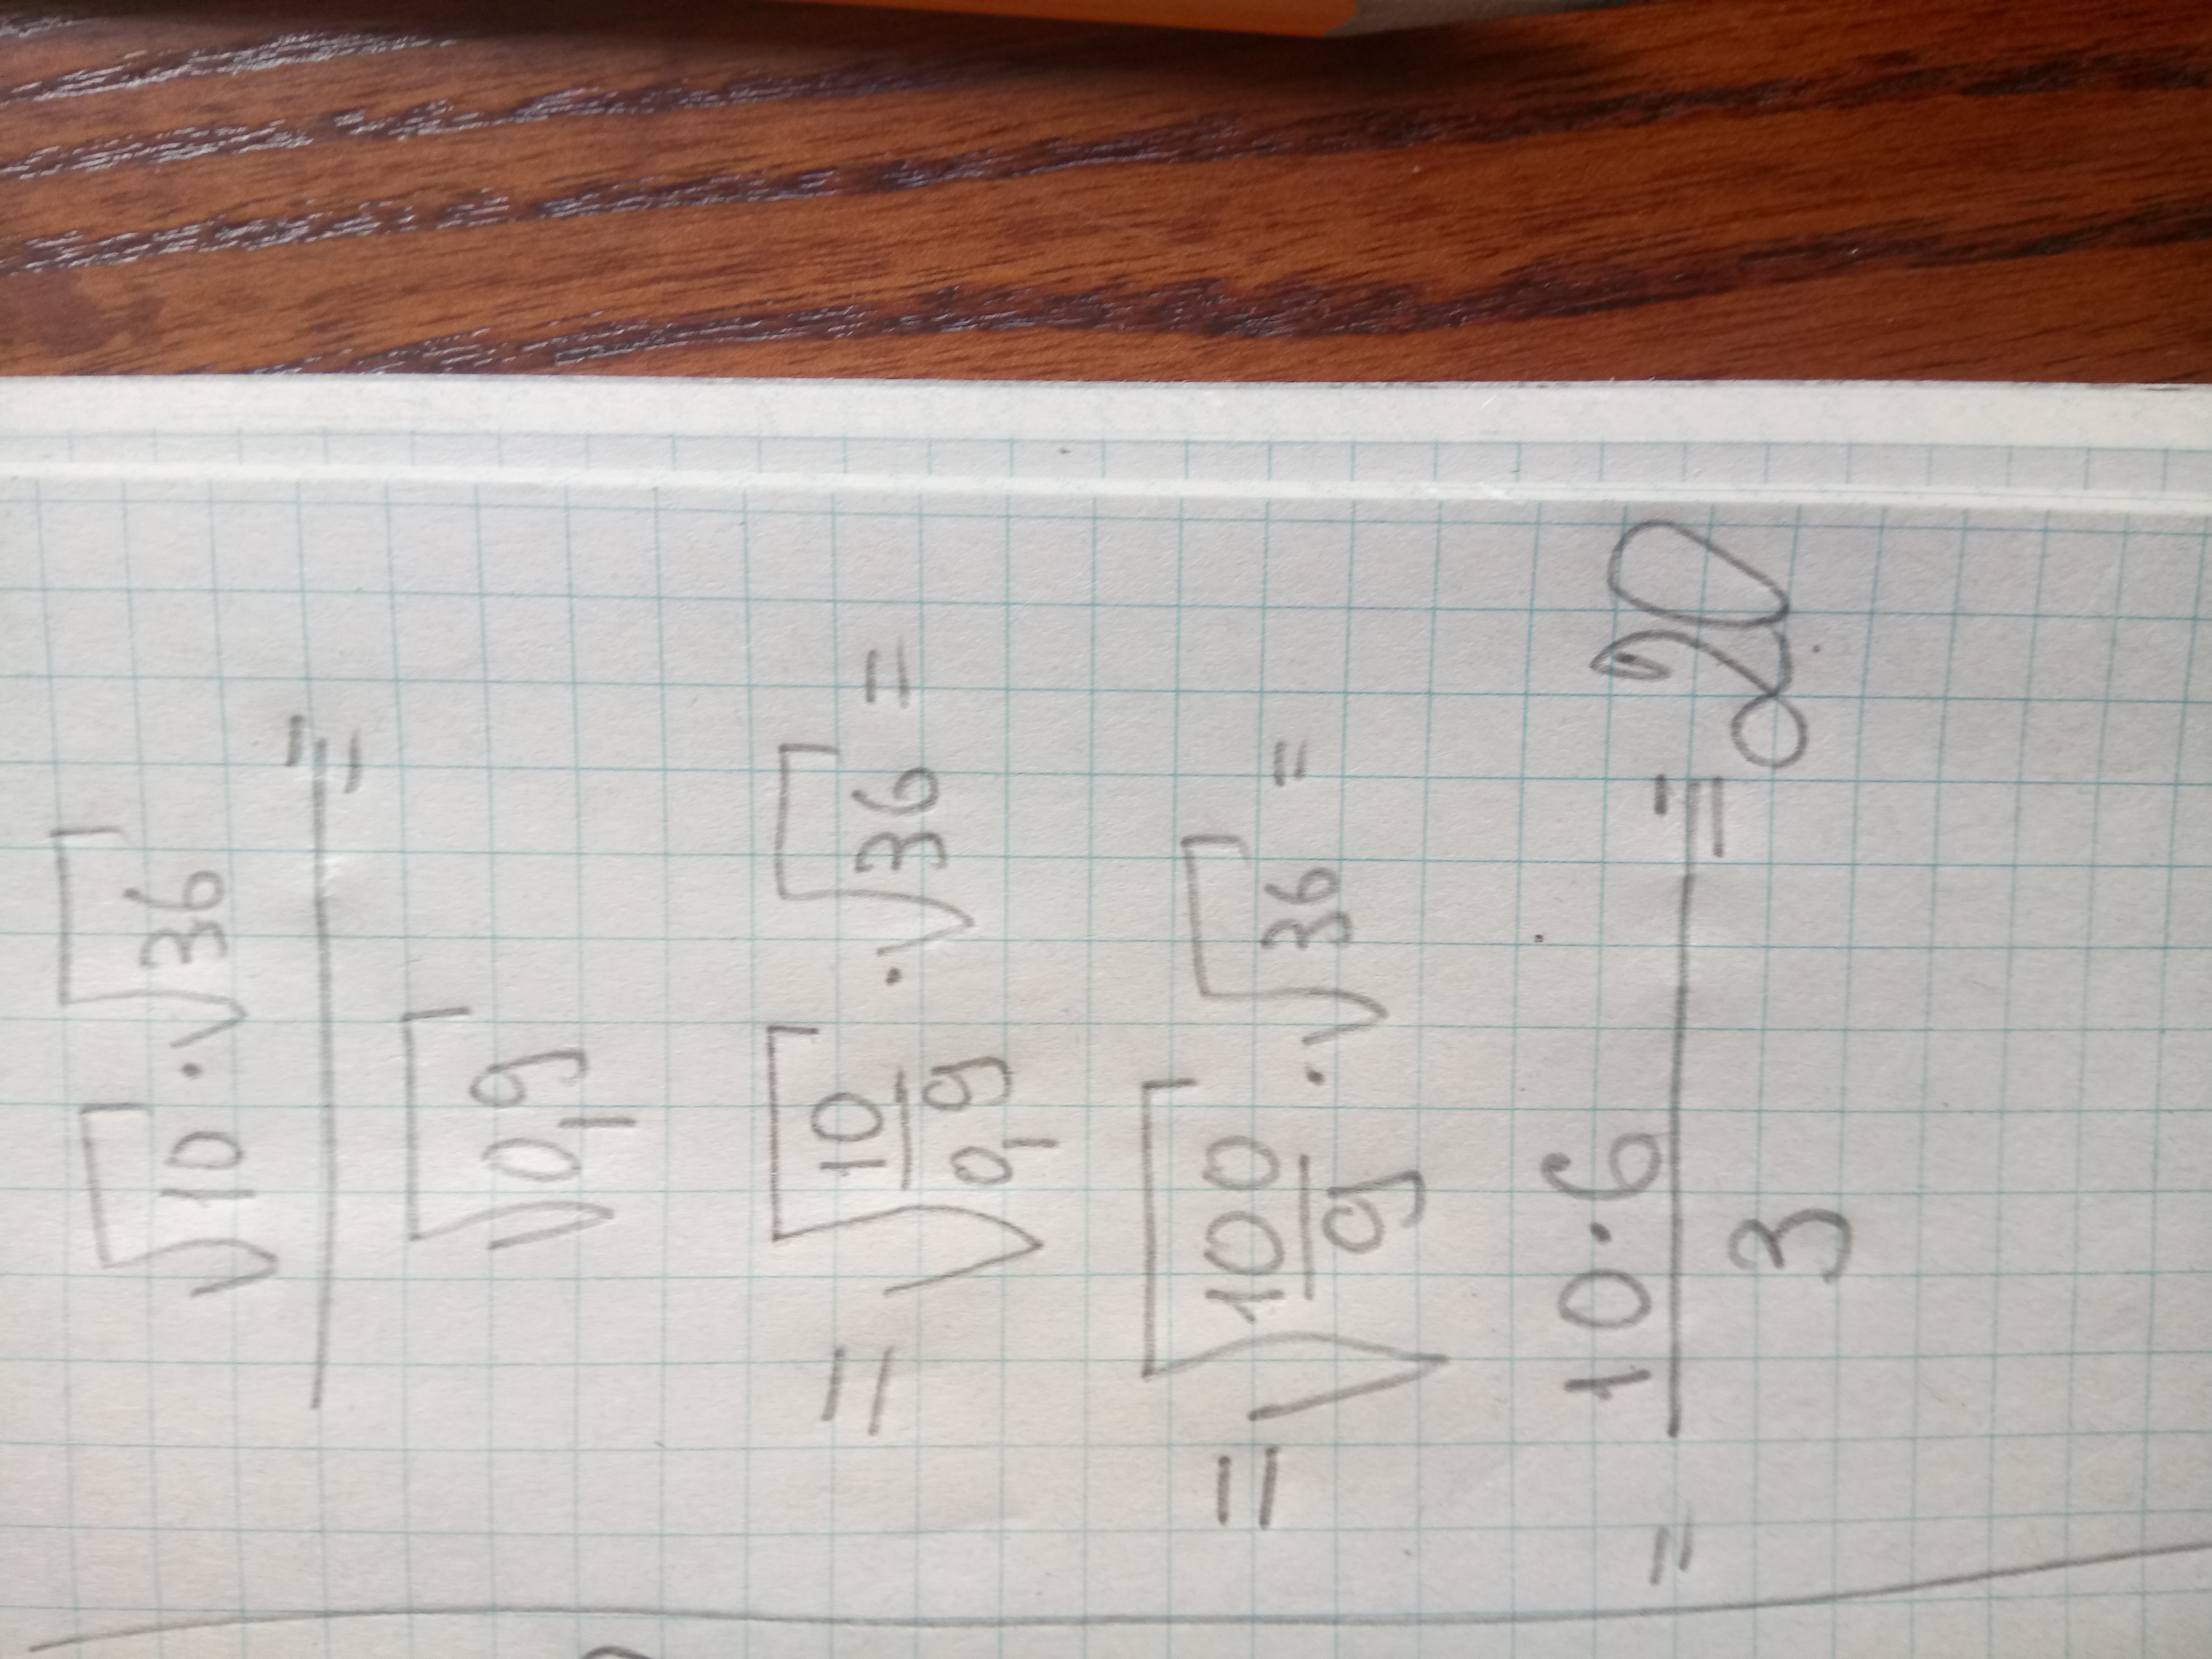 √10 · √36 / √0,9 =
= √(10/0,9) · √36 =
= √(100/9) · √36 =
= 10 · 6 / 3 = 20